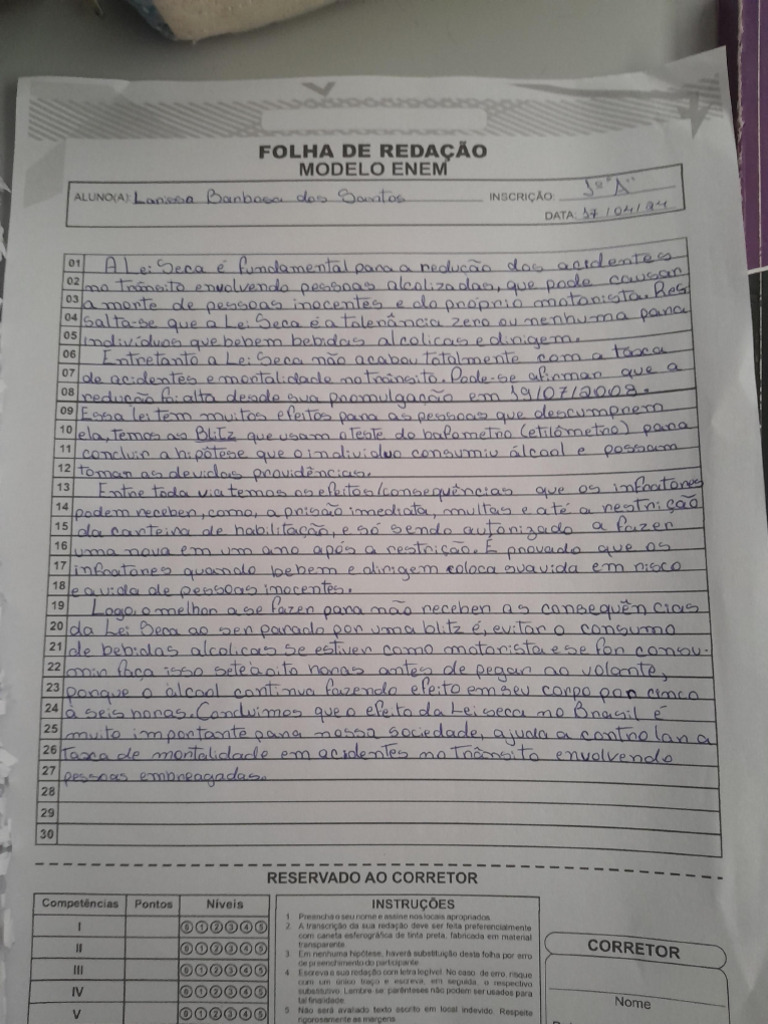 FOLHA DE REDAÇÃO
MODELO ENEM
ALUNO(A): Larissa Barbosa dos Santos INSCRIÇÃO: 1º "A"
DATA: 17/04/24
01 A Lei Seca é fundamental para a redução dos acidentes
02 no trânsito envolvendo pessoas alcolizadas, que pode causar
03 a morte de pessoas inocentes e do próprio motorista. Res
04 salta-se que a Lei Seca é a tolerância zero ou nenhuma para
05 indivíduos que bebem bebidas alcolicas e dirigem.
06 Entretanto a Lei Seca não acabou totalmente com a taxa
07 de acidentes e mortalidade no trânsito. Pode-se afirmar que a
08 redução foi alta desde sua promulgação em 19/07/2008.
09 Essa lei tem muitos efeitos para as pessoas que descumprem
10 ela, temos as Blitz que usam o teste do bafometro (etilômetro) para
11 concluir a hipótese que o indivíduo consumiu álcool e possam
12 tomar as devidas providências.
13 Entre toda via temos os efeitos/consequências que os infratores
14 podem receber, como, a prisão imediata, multas e até a restrição
15 da carteira de habilitação, e só sendo autorizado a fazer
16 uma nova em um ano após a restrição. É provado que os
17 infratores quando bebem e dirigem coloca sua vida em risco
18 e a vida de pessoas inocentes.
19 Logo, o melhor a se fazer para não receber as consequências
20 da Lei Seca ao ser parado por uma blitz é, evitar o consumo
21 de bebidas alcolicas se estiver como motorista e se for consu-
22 mir faça isso sete à oito horas antes de pegar ao volante,
23 porque o álcool continua fazendo efeito em seu corpo por cinco
24 à seis horas. Concluimos que o efeito da Lei seca no Brasil é
25 muito importante para nossa sociedade, ajuda a controlar a
26 taxa de mortalidade em acidentes no trânsito envolvendo
27 pessoas embreagadas.
28
29
30
RESERVADO AO CORRETOR
Competências Pontos Níveis
I 0 1 2 3 4 5
II 0 1 2 3 4 5
III 0 1 2 3 4 5
IV 0 1 2 3 4 5
V 0 1 2 3 4 5
INSTRUÇÕES
1 Preencha o seu nome e assine nos locais apropriados.
2 A transcrição da sua redação deve ser feita preferencialmente
com caneta esferográfica de tinta preta, fabricada em material
transparente.
3 Em nenhuma hipótese, haverá substituição desta folha por erro
de preenchimento do participante.
4 Escreva a sua redação com letra legível. No caso de erro, risque
com um único traço e escreva, em seguida, o respectivo
substitutivo. Lembre-se: parênteses não podem ser usados para
tal finalidade.
5 Não será avaliado texto escrito em local indevido. Respeite
rigorosamente as margens.
CORRETOR
Nome